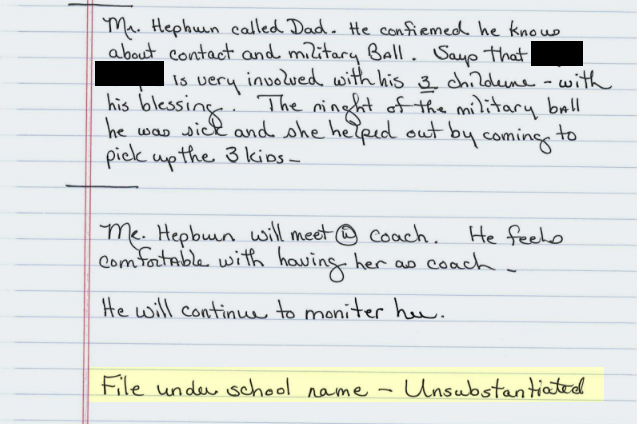 Mr. Hepburn called Dad. He confirmed he knows
about contact and military Ball. Says that
is very involved with his 3 childrne - with
his blessing. The ninght of the military ball
he was sick and she helped out by coming to
pick up the 3 kids -
Mr. Hepburn will meet w coach. He feels
comfortable with having her as coach -
He will continue to moniter her.
File under school name - Unsubstantiated